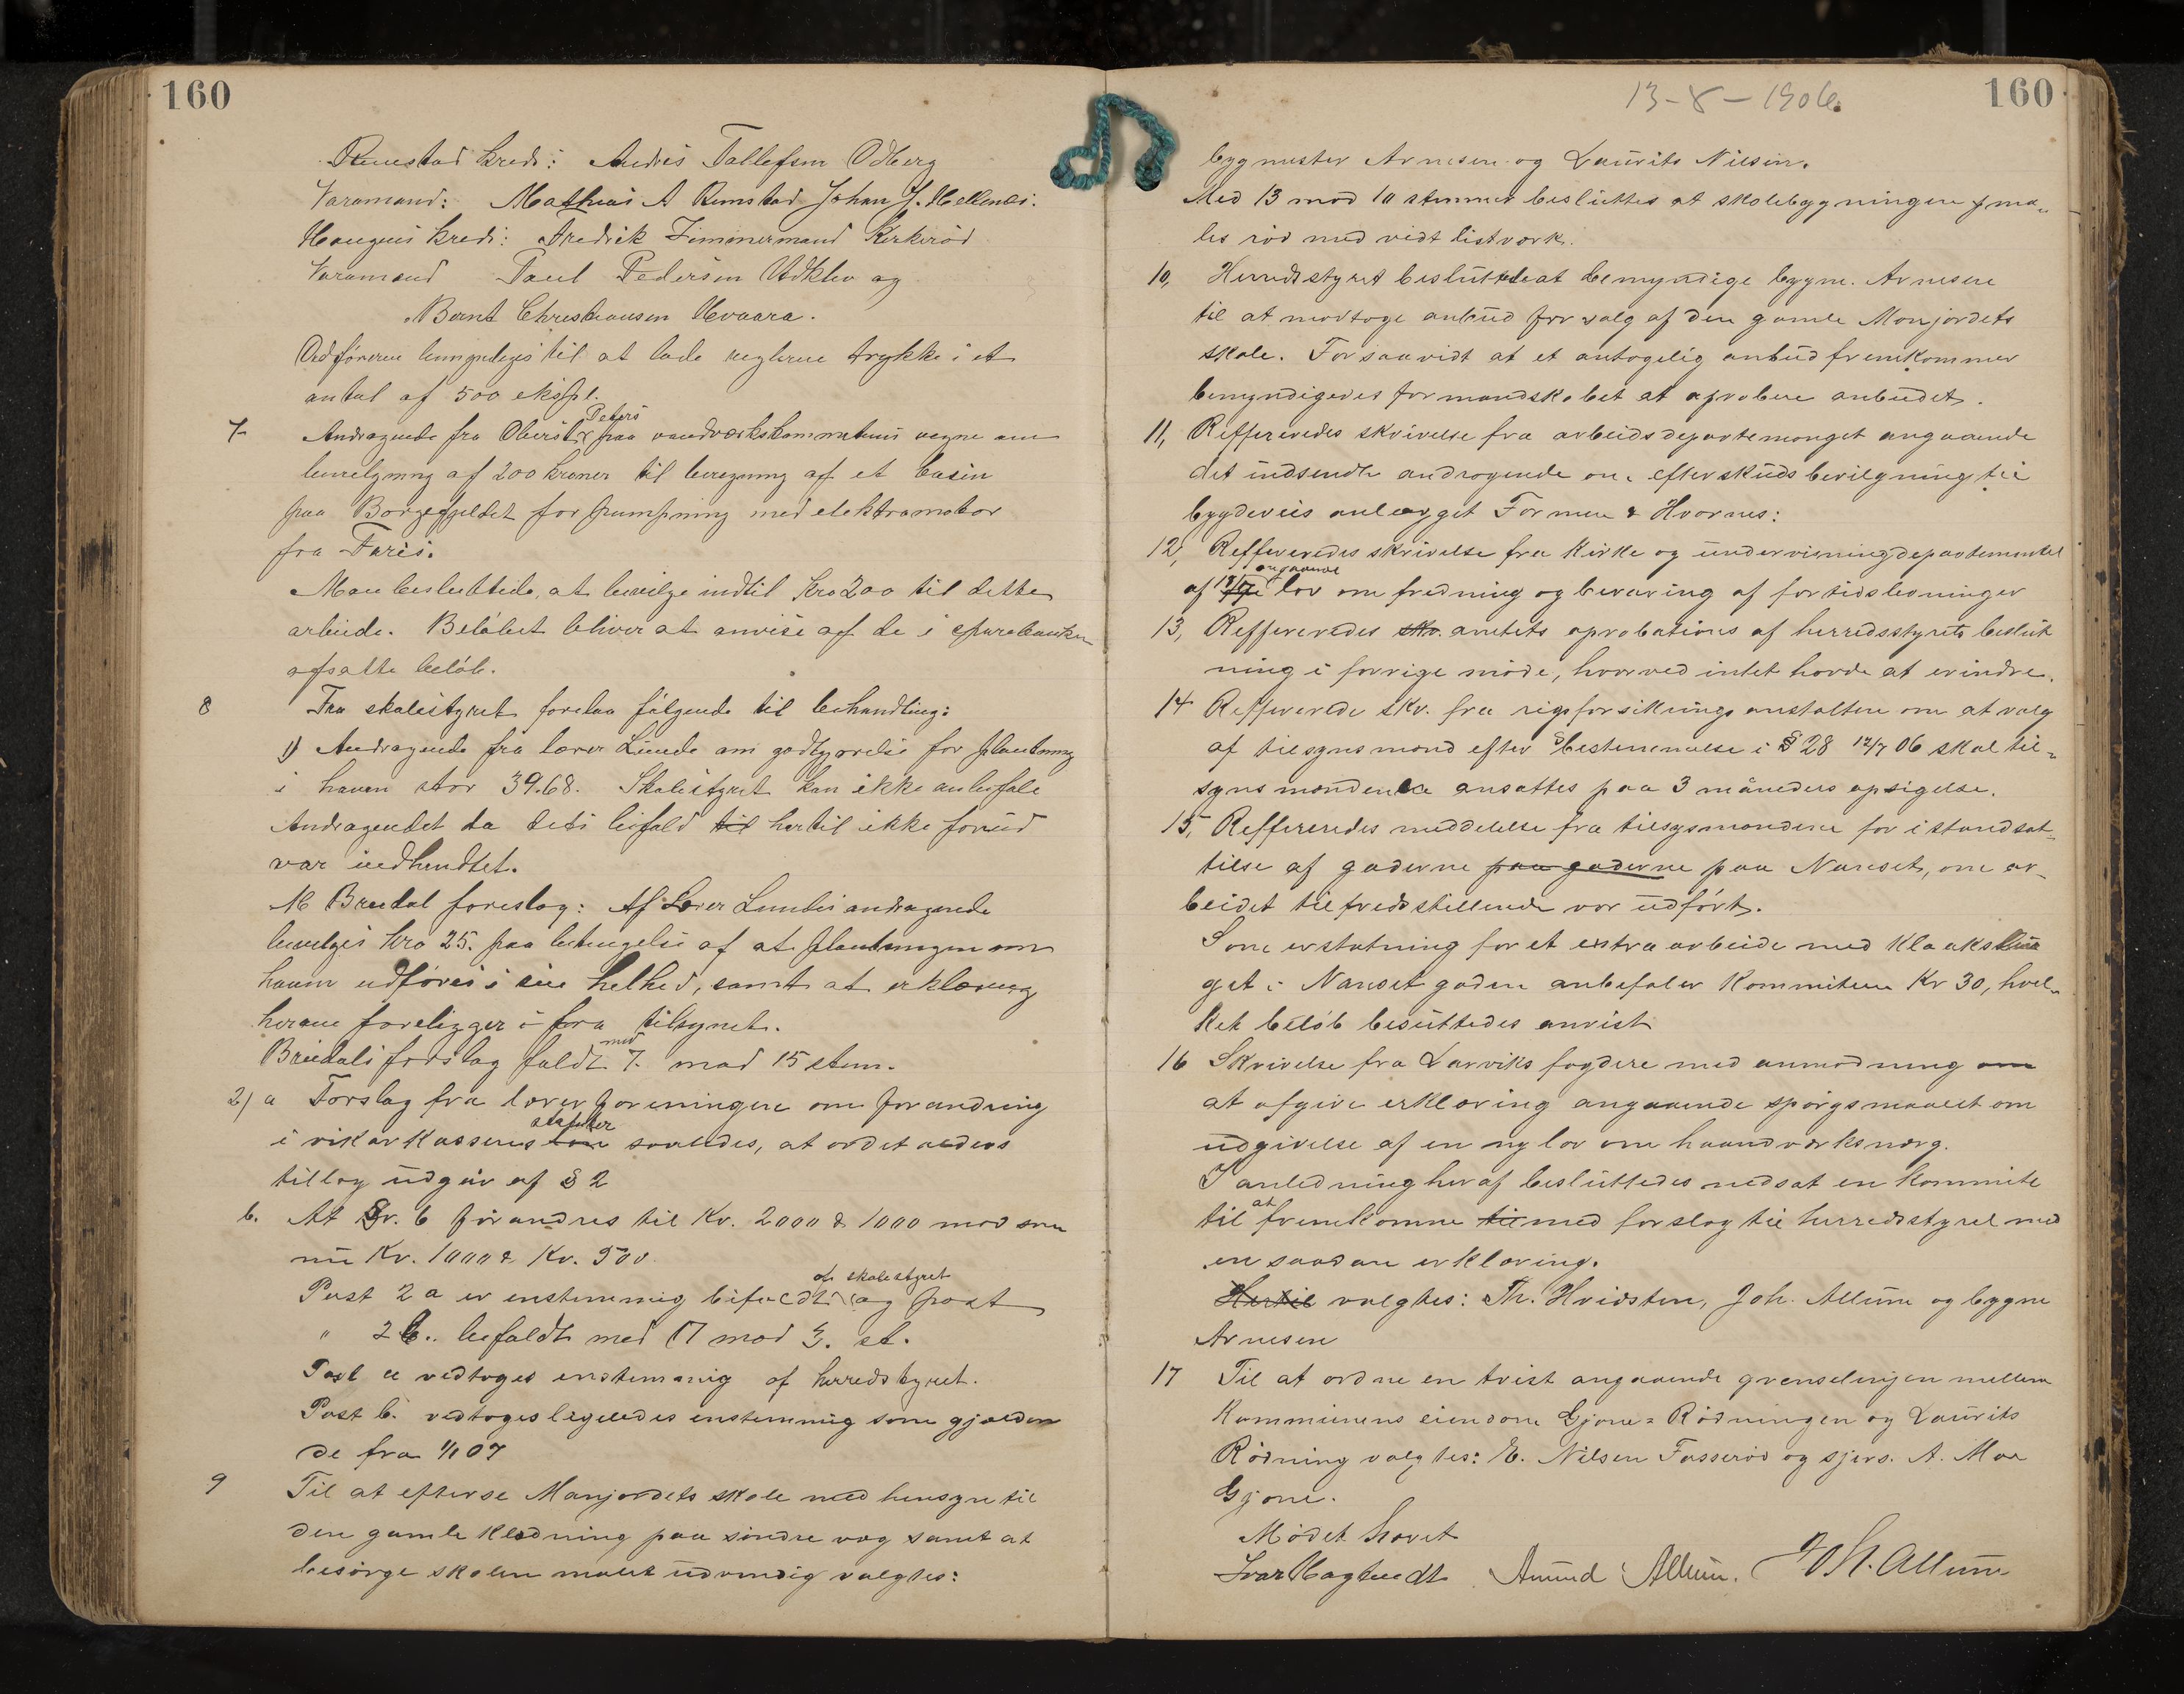 160
Rimstad kreds: Andrés Tallefsen Odberg
Varamand: Mathias A Rimstad Johan J. Hellenes.
Haugens kreds: Fredrik Zimmermand Kirkerød
Varamand Paul Pedersen Udklev og
Bernt Christiansen Hvaara.
Ordføreren bemyndiges til at lade reglerne trykke i et
antal af 500 ekspl.
7. Andragende fra Oberst Peters paa vandværkskommiteens vegne om
bevilgning af 200 kroner til beregning af et basin
paa Borgefjeldet for pumpning med elektromotor
fra Farris.
Man besluttede, at bevilge indtil Kro 200 til dette
arbeide. Beløbet bliver at anvise af de i sparebanken
afsatte beløb.
8 Fra skolestyret forelaa følgende til behandling:
1) Andragende fra lærer Lunde om godtgjørelse for plantning
i haven stor 39.68. Skolestyret kan ikke anbefale
Andragendet da dets bifald til hertil ikke forud
var indhendtet.
M Bredal foreslog: Af Lærer Lundes andragende
bevilges kro 25. paa betingelse af at plantningen om
haven udføres i sin helhed, samt at erklæring
herom foreligger i fra tilsynet.
Bredals forslag faldt med 7. mod 15 stem.
2) a Forslag fra lærerforeningen om forandring
i vikarkassens statuter saaledes, at ordet alders
tillæg udgår af § 2
b. At Gr. 6 forandres til Kr. 2000 & 1000 mod som
nu Kr. 1000 & Kr. 500
Post 2 a er enstemmig bifaldt af skolestyret og post
" 2 b.. bifaldt med 17 mod 3. st.
Post a vedtoges enstemmig af herredstyret.
Post b. vedtoges ligeledes enstemmig som gjælden
de fra 1/1 07
9 Til at efterse Manjordets skole med hensyn til
den gamle klædning paa søndre væg samt at
besørge skolen malet udvendig valgtes:
13-8-1906.
160
bygmester Arnesen og Laurits Nilsen.
Med 13 mod 10 stemmer besluttes at skolebygningen ma„
les rød med vidt listværk.
10, Herredsstyret besluttede at bemyndige bygm. Arnesen
til at modtage anbud for salg af den gamle Manjordets
skole. Forsaavidt at et antagelig anbud fremkommer
bemyndigedes formandskabet at aprobere anbudet.
11, Reffereredes skrivelse fra arbeidsdepartemenget angaaende
det indsendte andragende om efterskuds bevilgning til
bygdeveis anlægget Formen & Hvarnes:
12, Reffereredes skrivelse fra Kirke og undervisningdepartementet
af 13/7 angaaende lov om fredning og bevaring af fortidslevninger
13, Reffereredes skr. amtets aprobations af herredsstyrets beslut
ning i forrige møde, hvorved intet havde at erindre.
14 Reffererede skr. fra rigsforsikrings anstalten om at valg
af tilsynsmand efter bestemmelse i § 28 12/7 06 skal til„
synsmændene ansættes paa 3 måneders opsigelse.
15, Reffereredes meddelelse fra tilsysmændene for i standsæt„
telse af gaderne paa gaderne paa Nanset, om ar„
beidet tilfredsstillende var udført.
Som erstatning for et extra arbeide med kloakslu
get i Nanset gaden anbefaler kommiteen Kr 30, hvil„
ket beløb besluttedes anvist
16 Skrivelse fra Larviks fogderi med anmodning om
at afgive erklæring angaaende spørgsmaalet om
udgivelse af en ny lov om haandværksnærg.
I anledning heraf besluttedes nedsat en kommite
til at fremkomme til med forslag til herredsstyret med
en saadan erklæring.
Hertil valgtes: Th. Hvidsten, Joh. Allum og bygm
Arnesen
17 Til at ordne en tvist angaaende grænselinjen mellem
Kommunens eiendom Gjone-Rødningen og Laurits
Rødning valgtes: E. Nilsen Fosserød og sjers. A. Moe
Gjone.
Mødet hævet
Ivar Hagtvedt Amund Allum. Joh. Allum